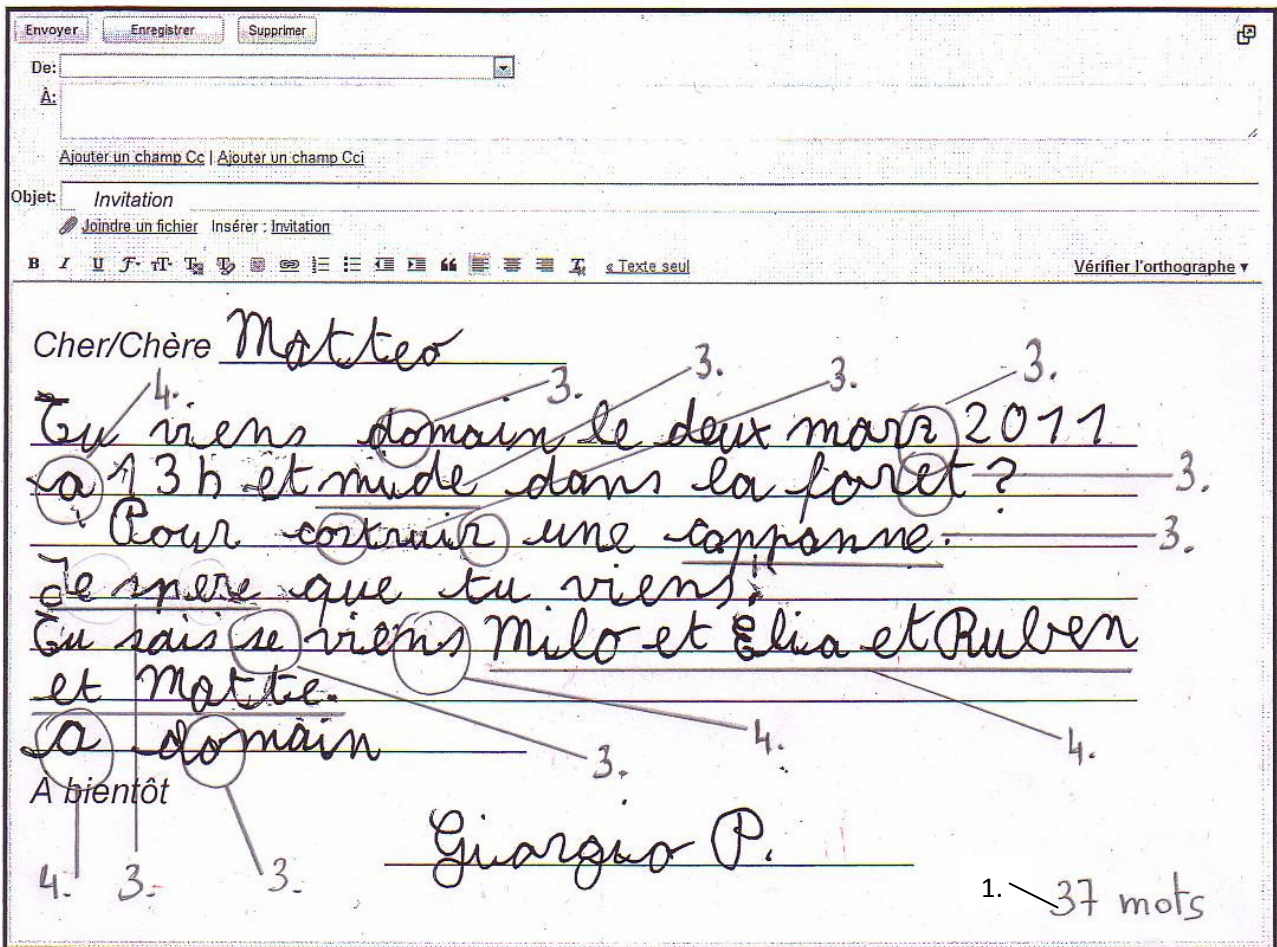 Envoyer Enregistrer Supprimer
De:
À:
Ajouter un champ Cc | Ajouter un champ Cci
Objet: Invitation
Joindre un fichier Insérer : Invitation
B I U « Texte seul Vérifier l'orthographe ▾
Cher/Chère Matteo
4. 3. 3. 3. 3.
Tu viens domain le deux marz 2011
a 13 h et mide dans la foret ? 3.
Pour costruir une cappanne. 3.
Je spere que tu viens!
Tu sais se viens Milo et Elia et Ruben
et Matte.
a domain 3. 4. 4.
A bientôt
Giorgio P.
4. 3. 3.
1. 37 mots